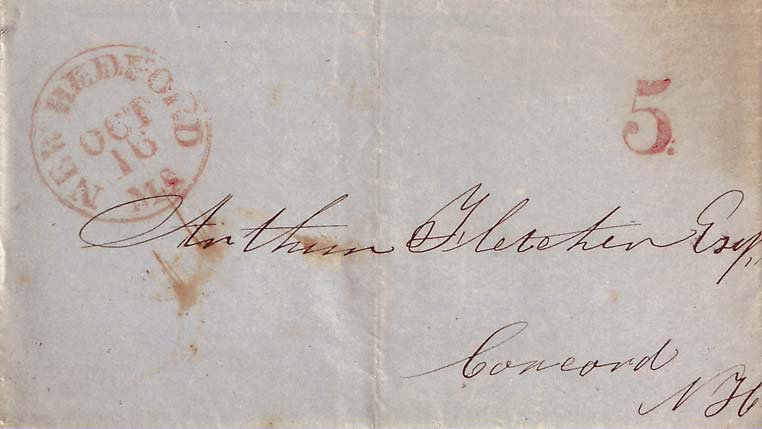 NEW BEDFORD
OCT
16
Ms.
5.
Arthur Fletcher Esq,
Concord
N H